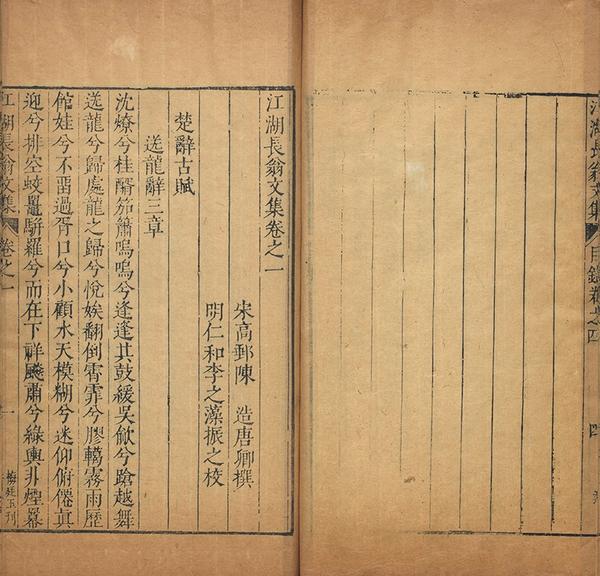 江湖長翁文集 目錄卷之四 四
江湖長翁文集卷之一
宋高郵陳 造唐卿撰
明仁和李之藻振之校
楚辭古賦
送龍辭三章
沈燎兮桂醑笳簫嗚嗚兮逢逢其鼓緩吳歈兮蹌越舞
送龍兮歸處龍之歸兮悅娭翻倒霄霏兮膠轕霧雨歷
館娃兮不畱過胥口兮小顧水天模糊兮迷仰俯僊眞
迎兮排空蛟鼉騈羅兮而在下祥飇肅兮綠輿非煙羃
江湖長翁文集 卷之一 一 刊